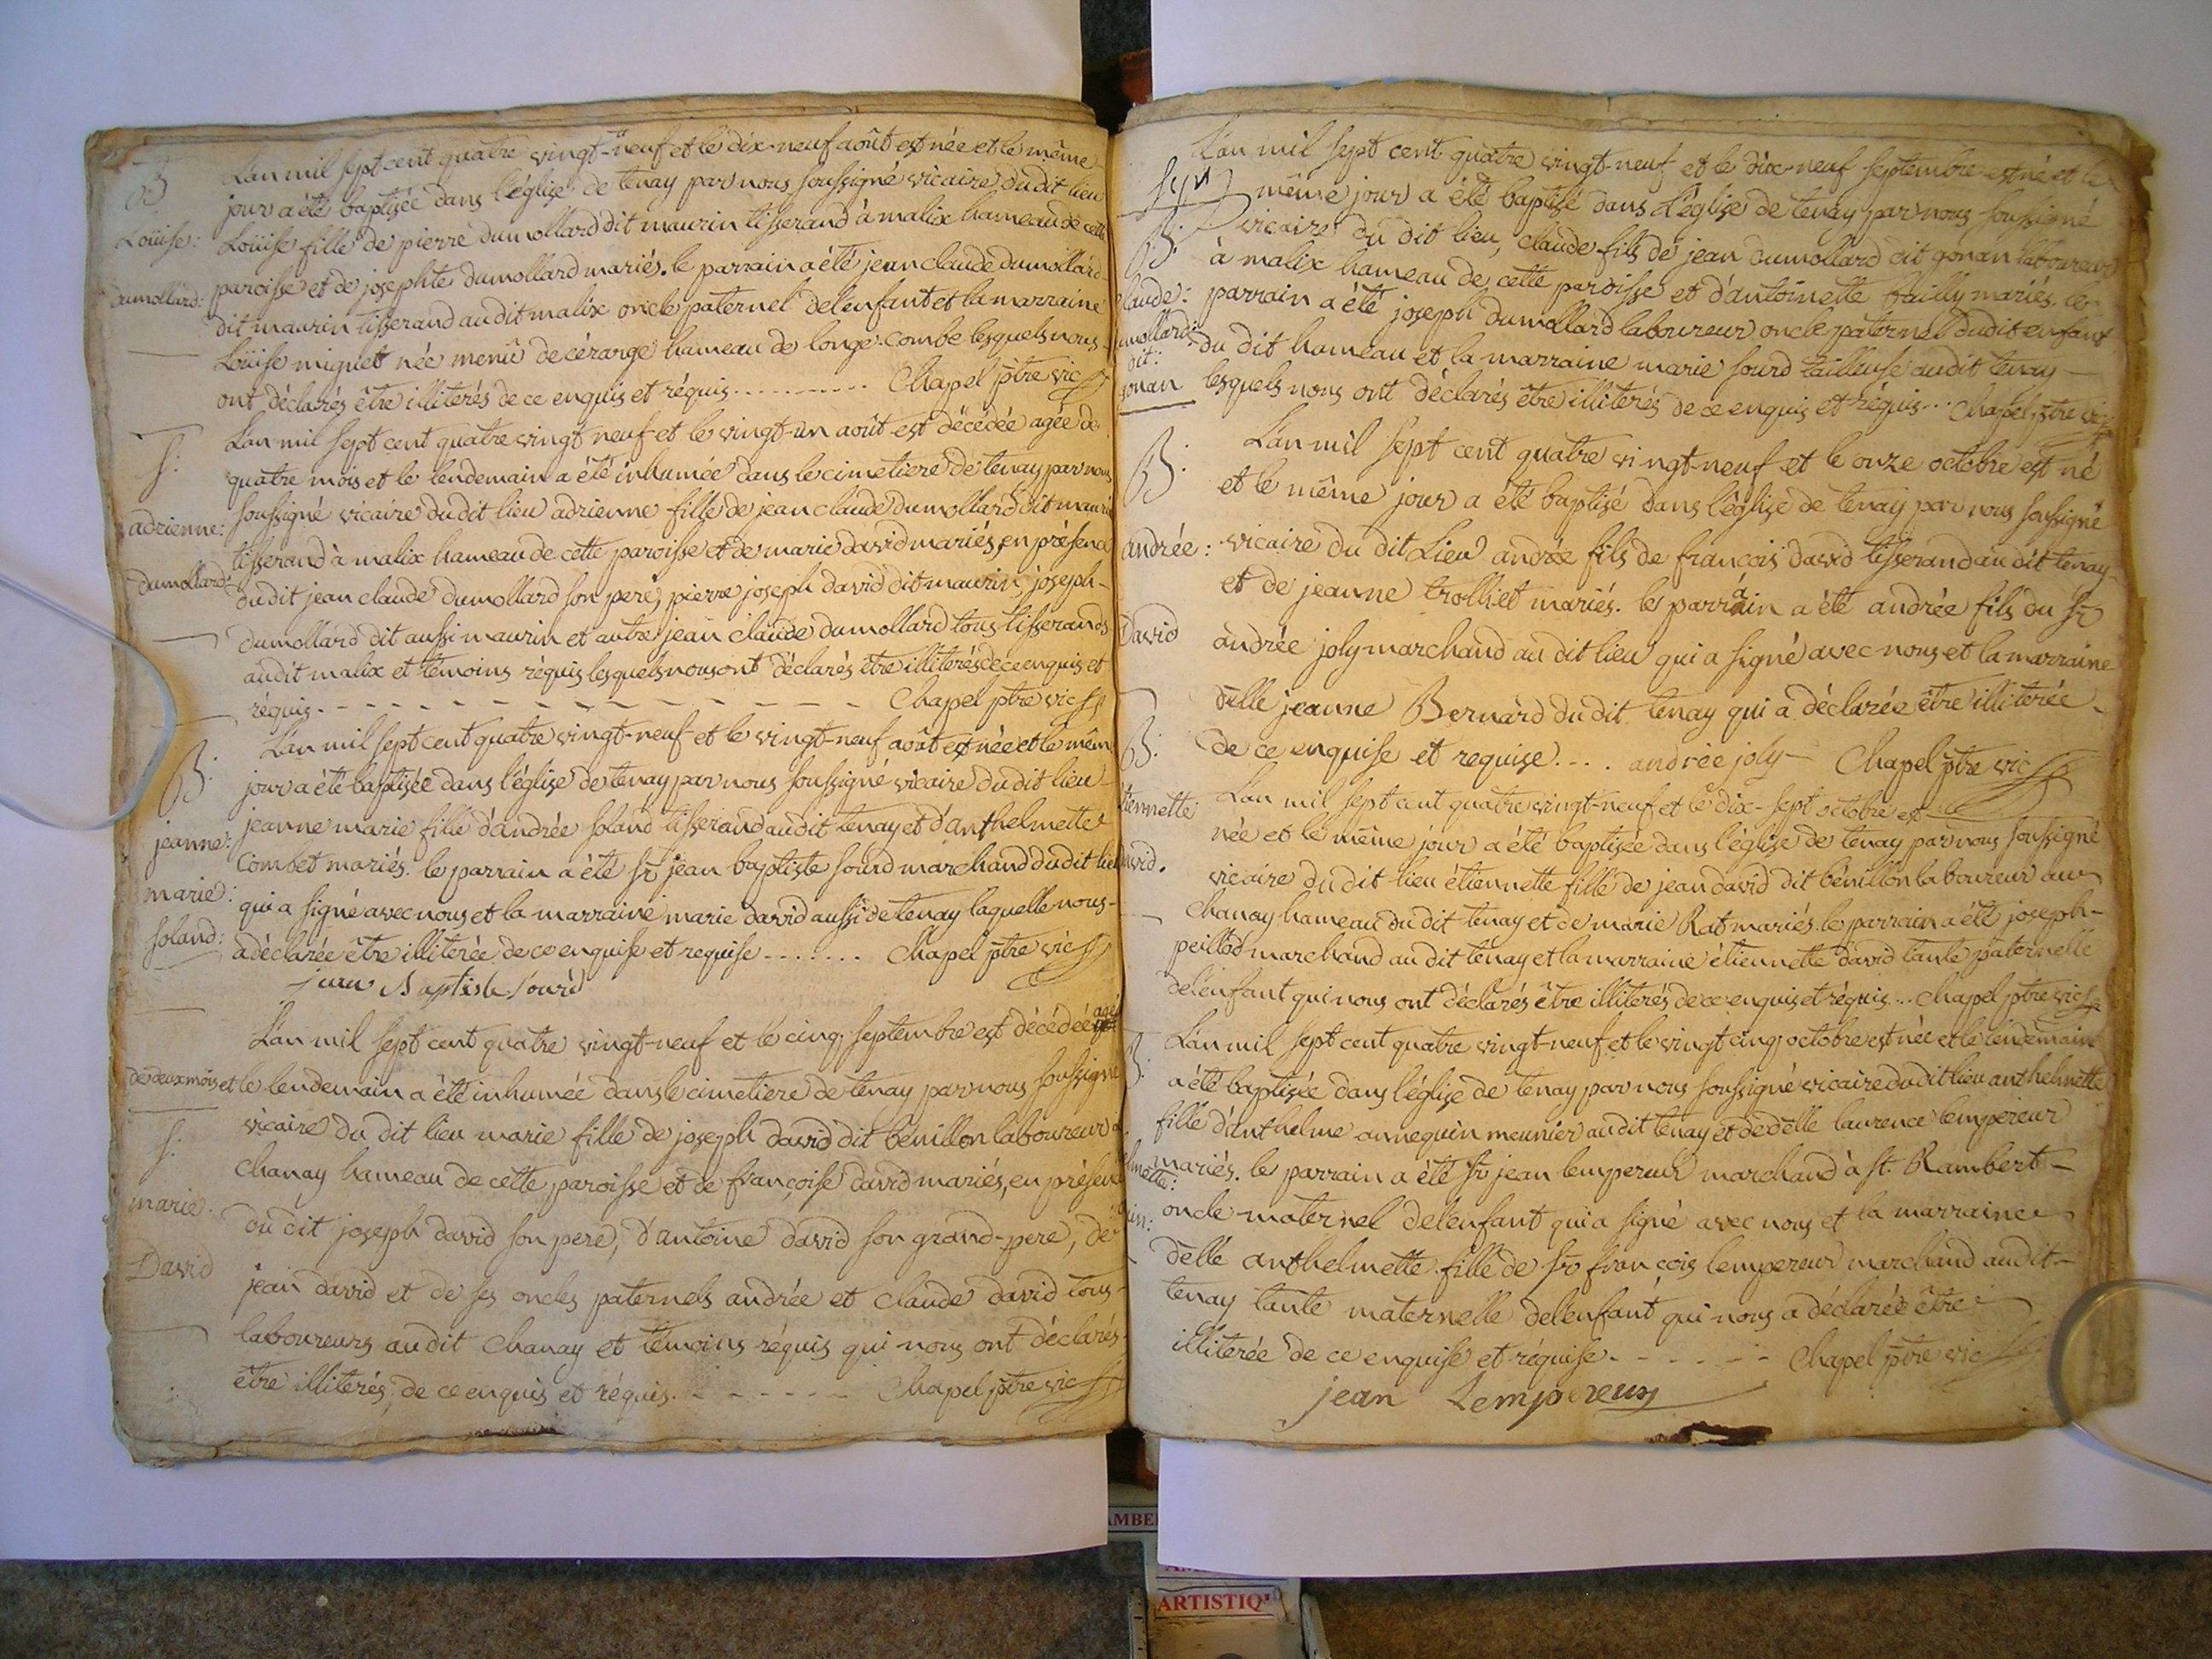 B
Loüise:
dumollard:
L'an mil sept cent quatre vingt-neuf et le dix-neuf août est née et le même
jour a été baptisée dans l'église de tenay par nous soussigné vicaire du dit lieu
Loüise fille de pierre dumollard dit maurin tisserand à malix hameau de cette
paroisse et de josephte dumollard mariés. le parrain a été jean claude dumollard
dit maurin tisserand audit malix oncle paternel de l'enfant et la marraine
Loüise miguet née menû de cérarge hameau de longe-combe lesquels nous
ont déclarés être illiterés de ce enquis et réquis.......... Chapel ptre vic
S:
adrienne:
dumollard:
L'an mil sept cent quatre vingt neuf et le vingt-un août est décédée agée de
quatre mois et le lendemain a été inhumée dans le cimetiere de tenay par nous
soussigné vicaire du dit lieu adrienne fille de jean claude dumollard dit mauri
tisserand à malix hameau de cette paroisse et de marie david mariés, en présence
du dit jean claude dumollard son pere, pierre joseph david dit maurin, joseph-
dumollard dit aussi maurin et autre jean claude dumollard tous tisserands
audit malix et témoins réquis lesquels nous ont déclarés être illiterés de ce enquis et
réquis. - - - - - - - - - - - - - - - - - Chapel ptre vic
B:
jeanne:
marie:
soland:
L'an mil sept cent quatre vingt-neuf et le vingt-neuf août est née et le mêm
jour a été baptisée dans l'église de tenay par nous soussigné vicaire du dit lieu
jeanne marie fille d'andrée soland tisserand audit tenay et d'anthelmette
Combet mariés. le parrain a été Sr jean baptiste sourd marchand du dit lieu
qui a signé avec nous et la marraine marie david aussi de tenay laquelle nous-
a déclarée être illiterée de ce enquise et requise ....... Chapel ptre vic
jean Baptiste Sourd
L'an mil sept cent quatre vingt-neuf et le cinq septembre est décédée agée
de deux mois et le lendemain a été inhumée dans le cimetiere de tenay par nous soussigné
S:
marie.
David
vicaire du dit lieu marie fille de joseph david dit bénillon laboureur à
Chanay hameau de cette paroisse et de françoise david mariés, en présence
du dit joseph david son pere, d'antoine david son grand-pere, de
jean david et de ses oncles paternels andrée et claude david tous-
laboureurs audit Chanay et témoins réquis qui nous ont déclarés
être illiterés, de ce enquis et réquis. - - - - - - - Chapel ptre vic
B:
laude:
umollard:
dit:
gonan
L'an mil sept cent quatre vingt-neuf et le dix-neuf septembre est né et le
même jour a été baptisé dans l'église de tenay par nous soussigné
vicaire du dit lieu, claude fils de jean dumollard dit gonan laboureur
à malix hameau de cette paroisse et d'antoinette bailly mariés. le
parrain a été joseph dumollard laboureur oncle paternel du dit enfant
du dit hameau et la marraine marie sourd tailleuse audit tenay
lesquels nous ont déclarés être illiterés de ce enquis et réquis... Chapel, ptre vic
B:
andrée:
David
L'an mil sept cent quatre vingt-neuf et le onze octobre est né
et le même jour a été baptisé dans l'église de tenay par nous soussigné
vicaire du dit Lieu andrée fils de françois david tisserand au dit tenay
et de jeanne trolliet mariés. le parrain a été andrée fils du Sr
andrée joly marchand au dit lieu qui a signé avec nous et la marraine
delle jeanne Bernard du dit tenay qui a déclarée être illiterée
de ce enquise et requise.... andrée joly Chapel ptre vic
B:
tiennette:
avid.
L'an mil sept cent quatre vingt-neuf et le dix-sept octobre est
née et le même jour a été baptisée dans l'église de tenay par nous soussigné
vicaire du dit lieu étiennette fille de jean david dit bénillon laboureur au
Chanay hameau du dit tenay et de marie Rat mariés. le parrain a été joseph-
peillod marchand au dit tenay et la marraine étiennette david tante paternelle
de l'enfant qui nous ont déclarés être illiterés de ce enquis et réquis... Chapel ptre vic
B.
elmette:
uin:
L'an mil sept cent quatre vingt-neuf et le vingt cinq octobre est née et le lendemain
a été baptisée dans l'église de tenay par nous soussigné vicaire du dit lieu anthelmette
fille d'anthelme annequin meunier audit tenay et de delle laurence lempereur
mariés. le parrain a été Sr jean lempereur marchand à St. Rambert
oncle maternel de l'enfant qui a signé avec nous et la marraine
delle anthelmette fille de Sr françois lempereur marchand audit-
tenay tante maternelle de l'enfant qui nous a déclarée être
illiterée de ce enquise et réquise. - - - - - - Chapel ptre vic
jean Lempereur
AMBE
ARTISTIQ